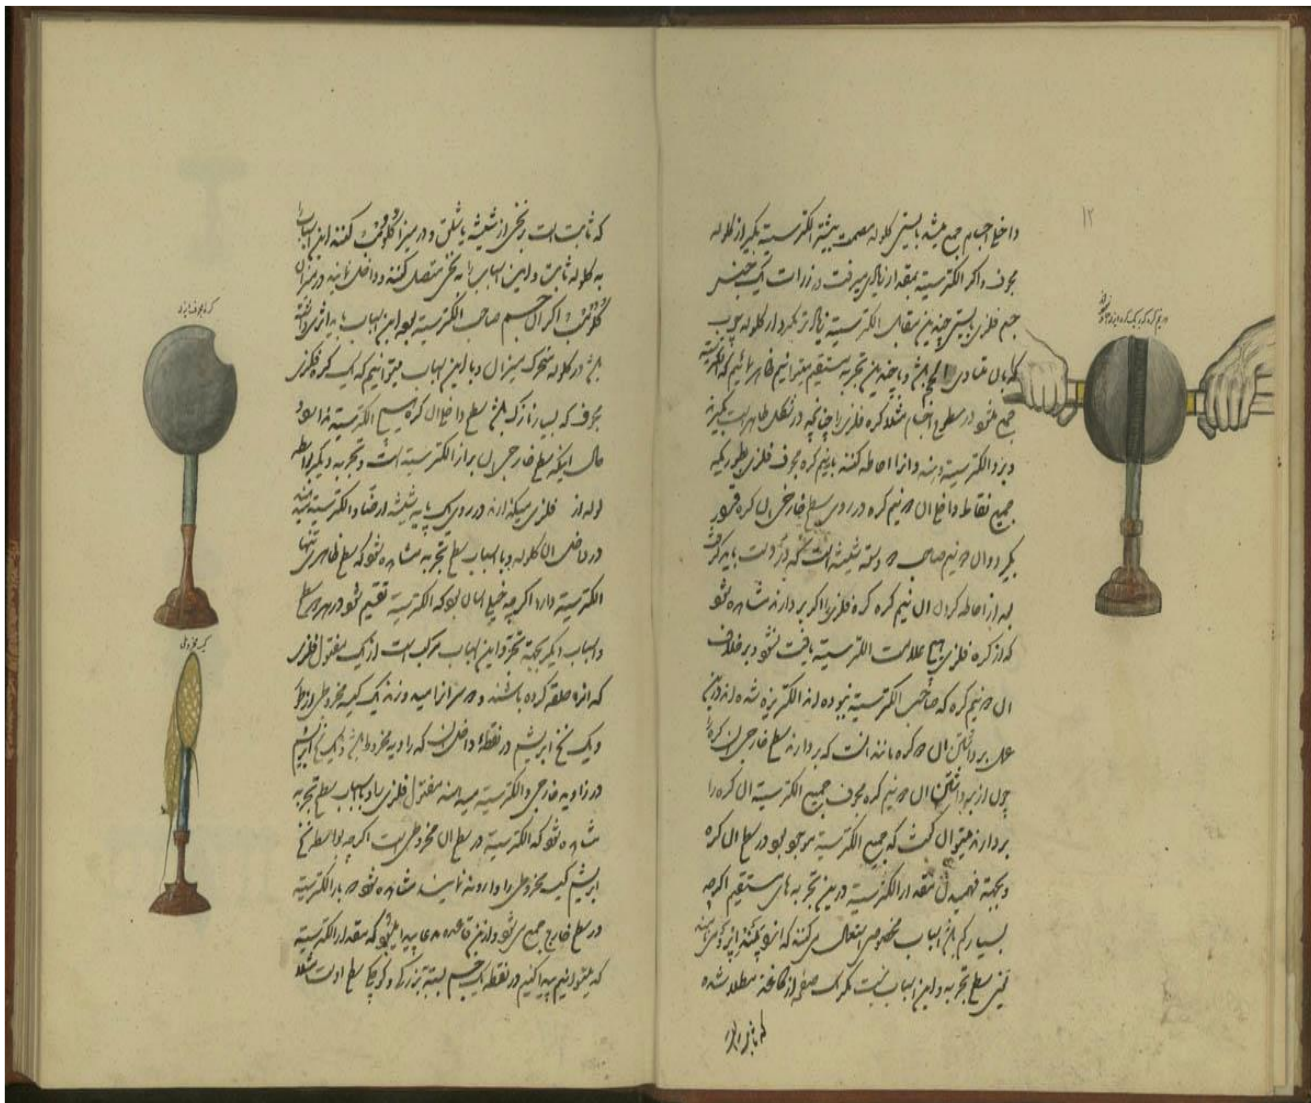 ۱۲
داخل اجسام جمع میشد بایستی کلوله مصمت بیشتر الکتریسیته بگیرد از کلوله
مجوف و اگر الکتریسیته بمقدار زیادی میرفت در ذرات یک جنس
جسم فلزی بایستی چندین مقابل الکتریسیته زیادتر بگیرد از کلوله چوب
که بآن متساوی الحجم باشد و با چندین تجربه مستقیم میتوانیم ظاهر نمائیم که الکتریسیته
جمع میشود در سطوح اجسام مثلا کره فلزی را چنانچه در شکل ظاهر است بگیرند
و بدو الکتریسیته دهند و آنرا احاطه کنند با نیم کره مجوف فلزی بطوریکه
جمیع نقاط داخل آن دو نیم کره در روی سطح خارجی آن کره قرار
بگیرد و آن دو نیم صاحب دو دسته شیشه است که در دست باید گرفت
بعد از احاطه کردن آن نیم کره کره فلزی را اگر بردارند مشاهده شود
که از کره فلزی هیچ علامت الکتریسیته یافت نشود و برخلاف
آن دو نیم کره که صاحب الکتریسیته نبوده اند الکتریزه شده اند در این
عمل برداشتن آن دو کره مانند آنست که بردارند سطح خارجی آن کره را
چون از برداشتن آن دو نیم کره مجوف جمیع الکتریسیته آن کره را
بردارند میتوان گفت که جمیع الکتریسیته موجود بود در سطح آن کره
و بجهة فهمیدن مقدار الکتریسیته در این تجربه های مستقیم اگر چه
بسیار کم باشد اسباب مخصوصی استعمال میکنند که آنرا
یعنی سطح تجربه و این اسباب نیست مگر یک صفحه از کاغذ مطلا شده
که ثابت است
که ثابت است بنخی از شیشه یا شلق و در میزان کولومب گفته این اسباب را
به کلوله ثابت و این اسباب را به نخی متصل کنند و داخل نمایند در میزان
کولومب اگر آن جسم صاحب الکتریسیته بود این اسباب باید اثری داشته
باشد در کلوله متحرک میزان و با این اسباب میتوانیم که یک کره فلزی
مجوف که بسیار نازک باشد سطح داخل آن کره هیچ الکتریسیته ندارد
حال اینکه سطح خارجی آن دارای الکتریسیته است و تجربه دیگر بواسطه
لوله از فلزی میگذارند در روی یک پایه شیشه
در داخل آن کلوله و با اسباب سطح تجربه مشاهده شود که سطح ظاهری تنها
الکتریسیته دارد اگر چه خیلی آسان بود که الکتریسیته تقسیم شود در هر دو سطح
و اسباب دیگر بجهة تجربه و این اسباب مرکب است از یک مفتول فلزی
که آنرا حلقه کرده باشند و دو سر آنرا میدوزند یک کیسه مخروطی
و یک نخ ابریشم در نقطه داخل آن که زاویه مخروط باشد و یک نخ ابریشم
در زاویه خارجی و الکتریسیته میدهند مفتول فلزی را و با اسباب سطح تجربه
مشاهده شود که الکتریسیته در سطح آن مخروطی است اگر چه بواسطه نخ
ابریشم کیسه مخروطی را وارونه نمایند مشاهده شود دوباره الکتریسیته
در سطح خارج جمع می شود و از این قاعده ها پیدا میشود که مقدار الکتریسیته
که میتوانیم پیدا کنیم در نقطه یک جسم بسته ببزرگی و کوچکی سطح اوست مثلا
کره مجوف فلزی
کیسه مخروطی